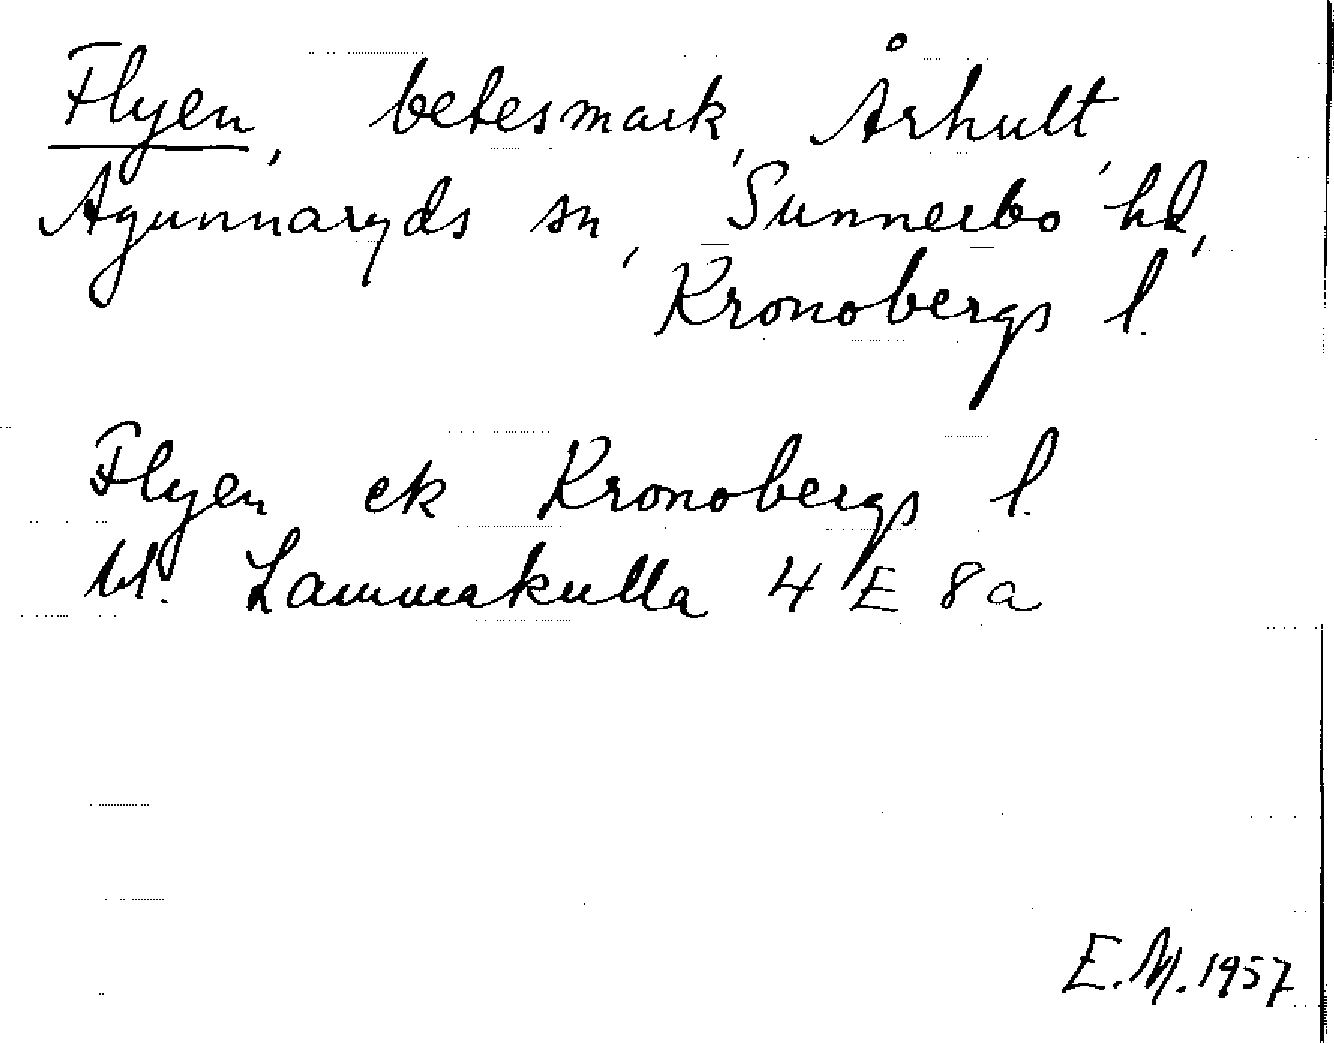 Flyen, betesmark, Århult,
Agunnaryds sn, Sunnerbo hd,
Kronobergs l.
Flyen ek Kronobergs l.
bl. Lammakulla 4 E 8a
E.M. 1957